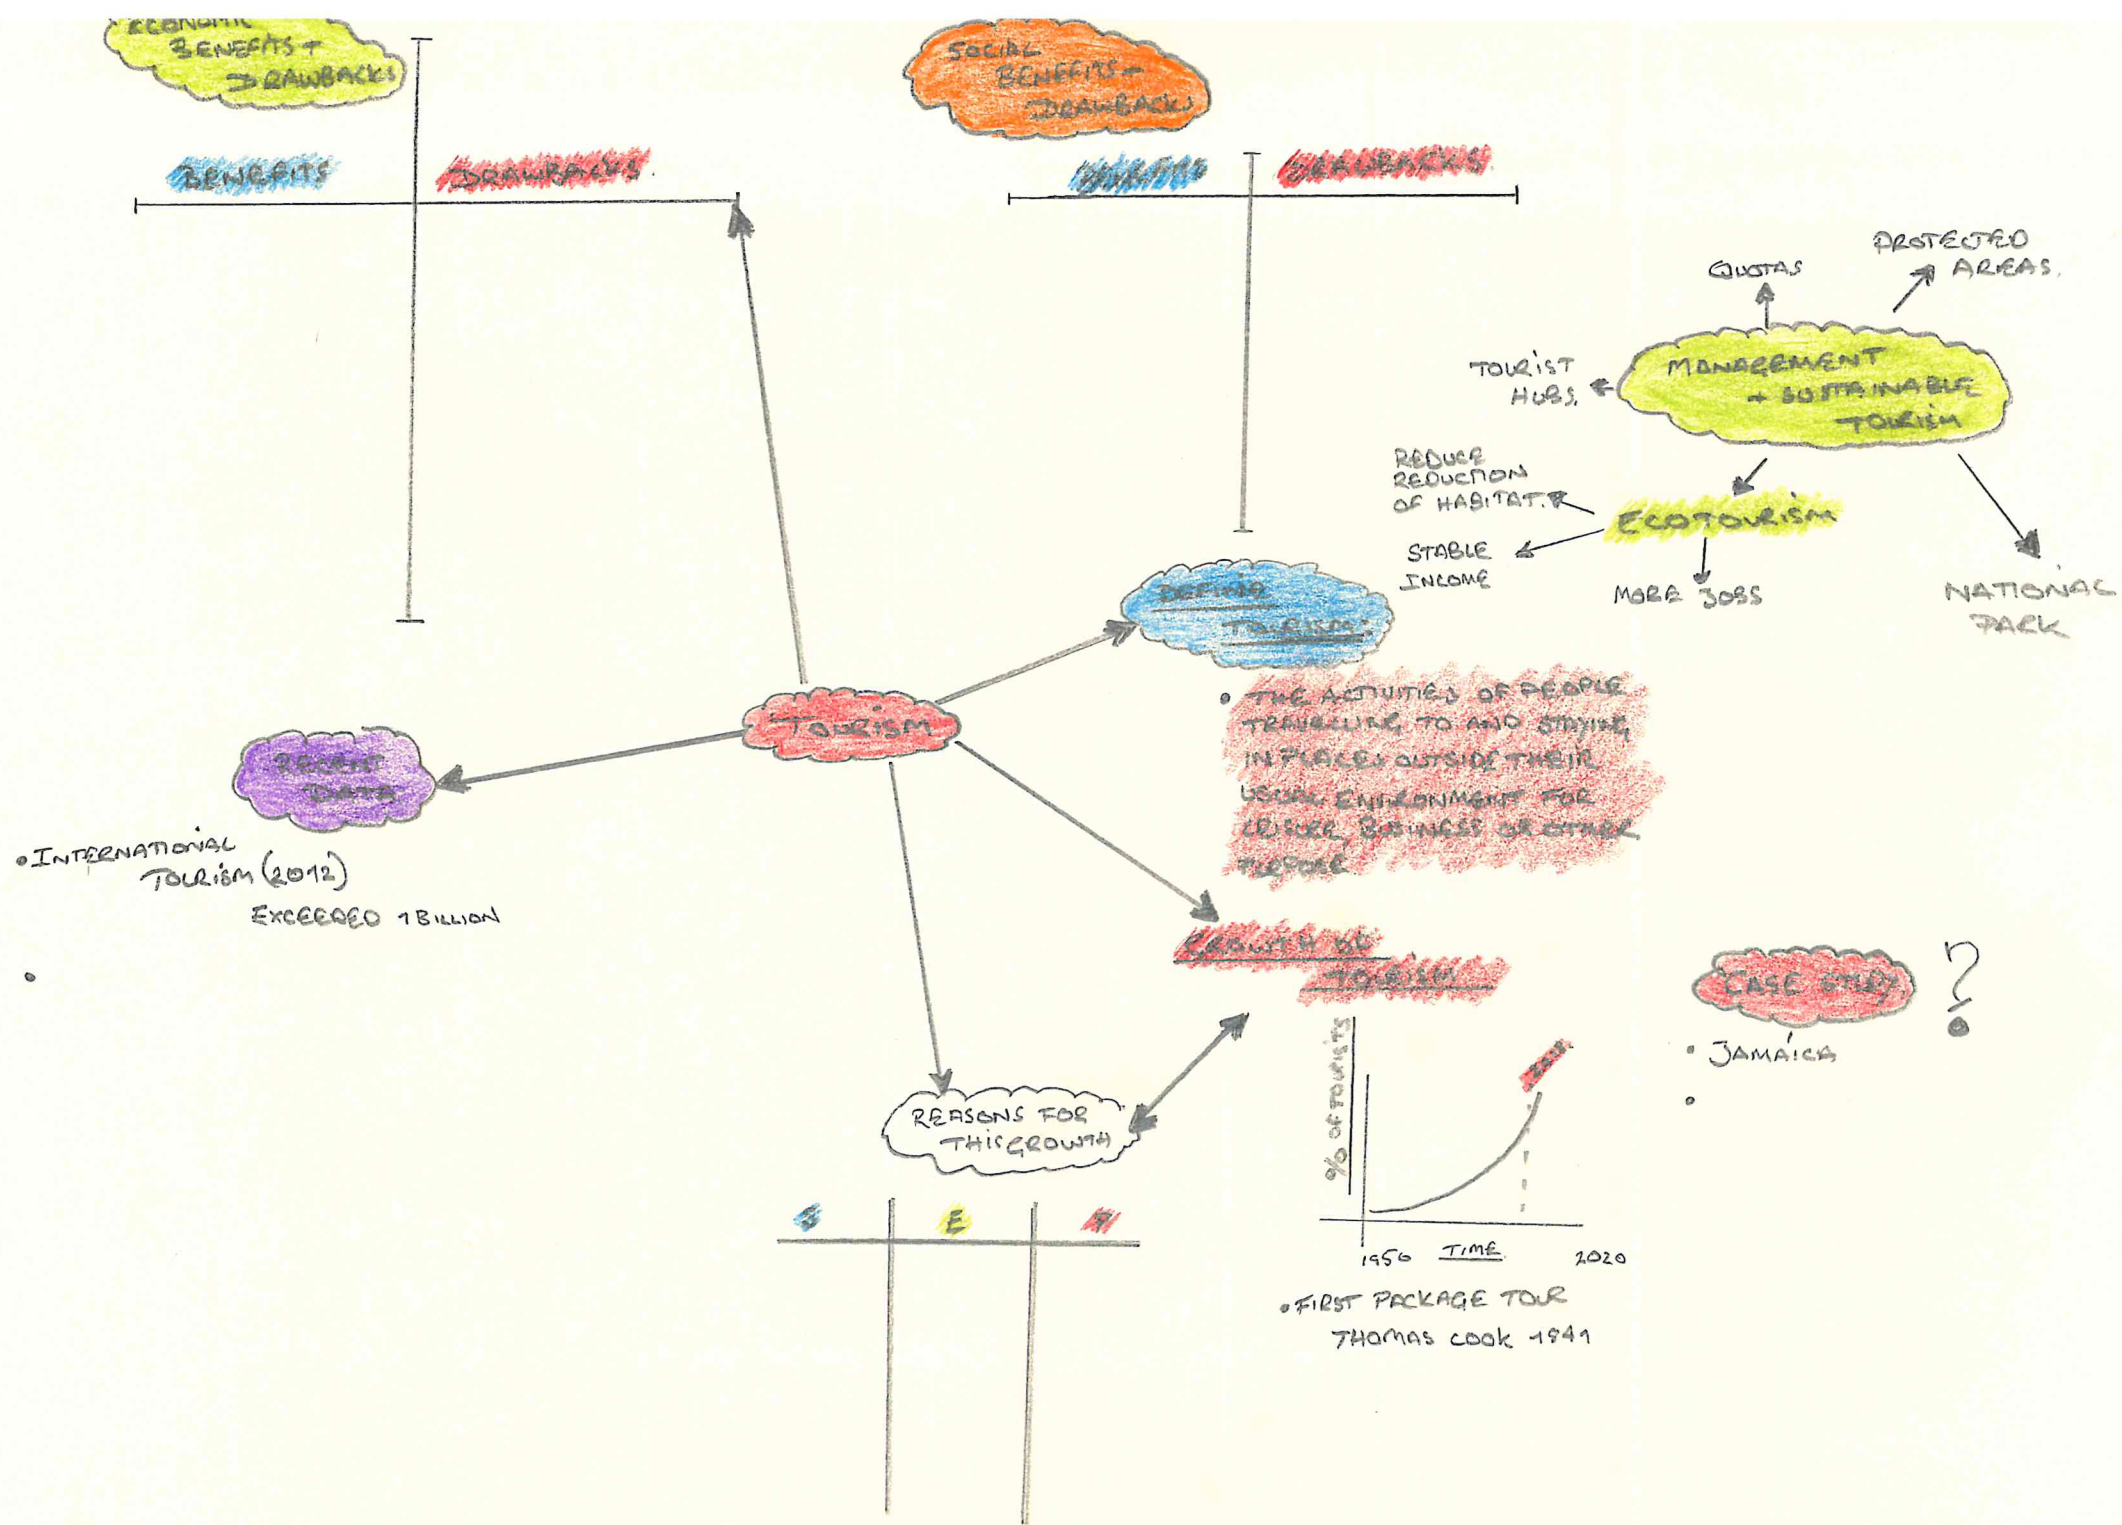 ECONOMIC
BENEFITS +
DRAWBACKS
BENEFITS
DRAWBACKS.
SOCIAL
BENEFITS -
DRAWBACKS
BENEFITS
DRAWBACKS
QUOTAS
PROTECTED
AREAS.
TOURIST
HUBS.
MANAGEMENT
+ SUSTAINABLE
TOURISM
REDUCE
REDUCTION
OF HABITAT.
ECOTOURISM
STABLE
INCOME
MORE JOBS
NATIONAL
PARK
DEFINE
TOURISM:
• THE ACTIVITIES OF PEOPLE
TRAVELLING TO AND STAYING
IN PLACES OUTSIDE THEIR
USUAL ENVIRONMENT FOR
LEISURE, BUSINESS OR OTHER
PURPOSE
TOURISM
RECENT
DATA
• INTERNATIONAL
TOURISM (2012)
EXCEEDED 1 BILLION
•
GROWTH OF
TOURISM
% OF TOURISTS
1950 TIME 2020
• FIRST PACKAGE TOUR
THOMAS COOK 1841
REASONS FOR
THIS GROWTH
S E P
CASE STUDY ?
• JAMAICA
•